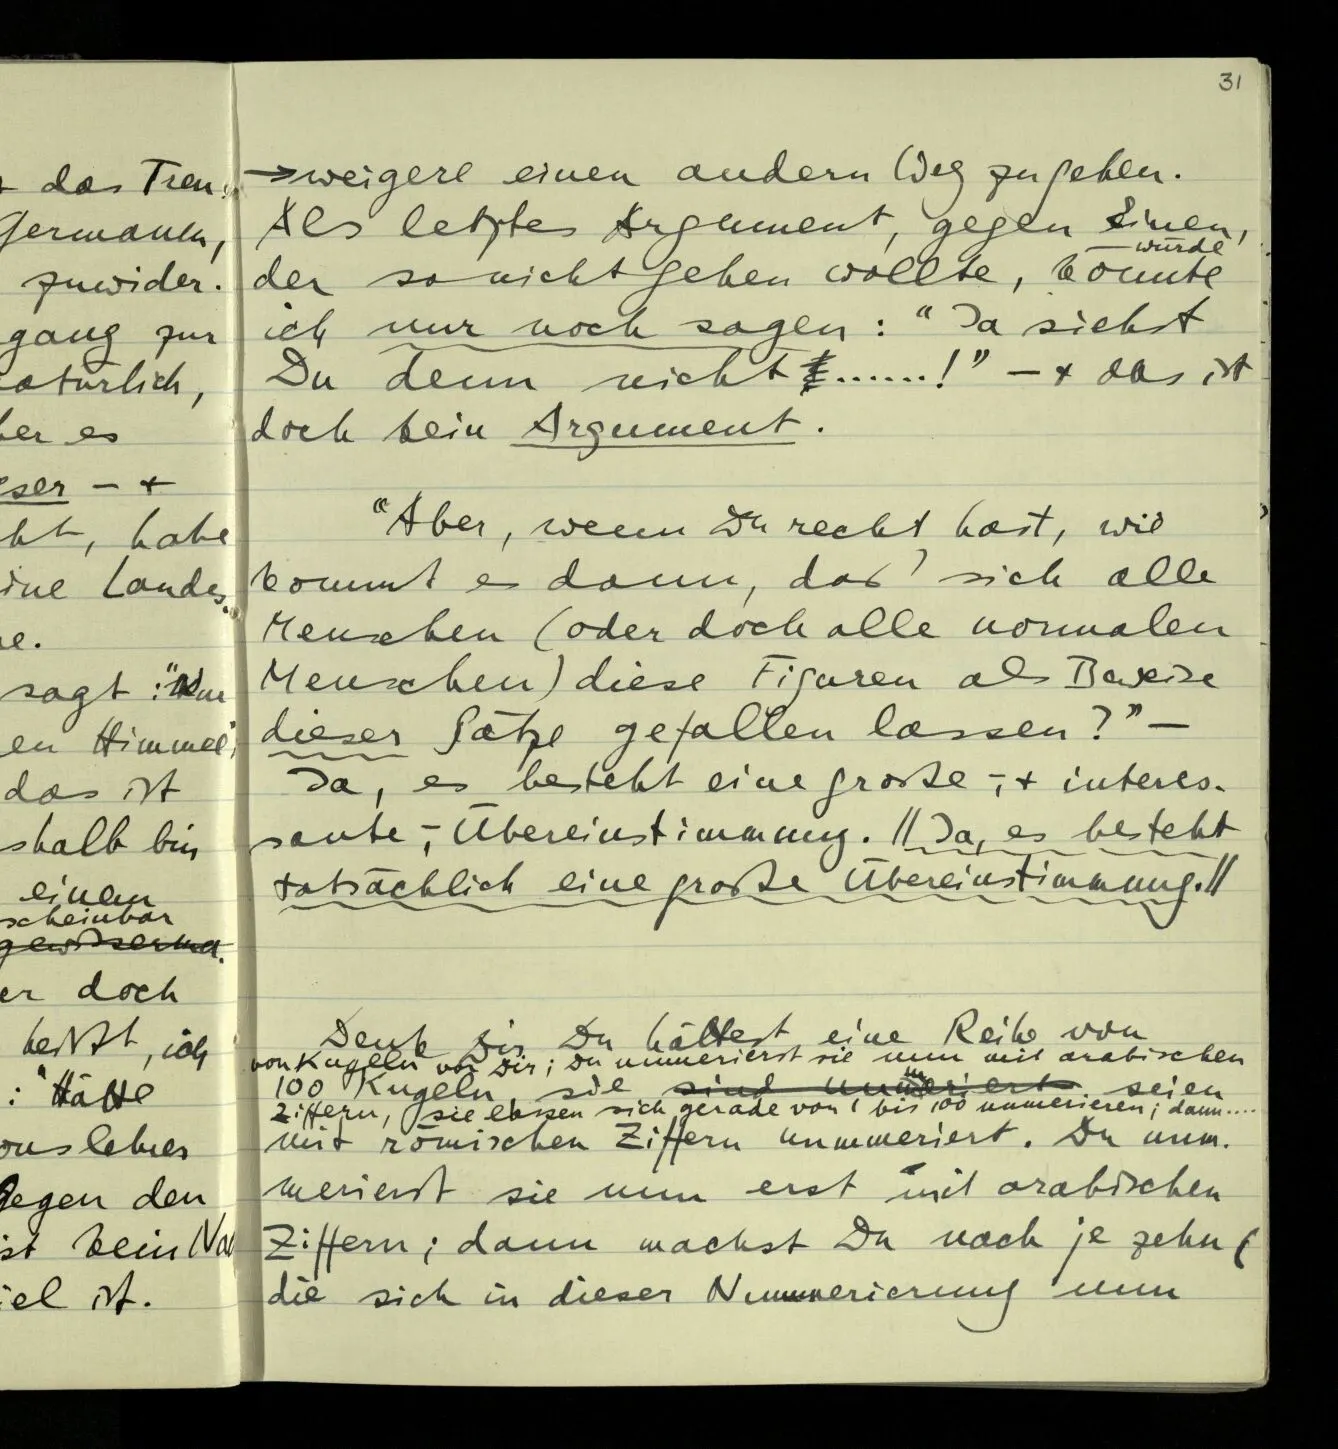 31
das Tren-
Germanen,
zuwider.
gang zur
natürlich,
ber es
eser – +
ht, habe
ine Landes-
e.
sagt: "Nur
en Himmel",
das ist
shalb bin
einen
scheinbar
gewisserma-
er doch
heißt, ich
: "Hätte
ouslehrer
gegen den
ist kein
iel ist.
→weigere einen andern Weg zu gehen.
Als letztes Argument, gegen Einen,
würde
der so nicht gehen wollte, könnte
ich nur noch sagen: "Ja siehst
Du denn nicht ......!" – + das ist
doch kein Argument.
"Aber, wenn Du recht hast, wie
kommt es dann, daß sich alle
Menschen (oder doch alle normalen
Menschen) diese Figuren als Beweise
dieser Sätze gefallen lassen?" –
Ja, es besteht eine große –, + interes-
sante –, Übereinstimmung. // Ja, es besteht
tatsächlich eine große Übereinstimmung. //
Denk Dir Du hättest eine Reihe von
von Kugeln vor Dir; Du nummerierst sie nun mit arabischen
100 Kugeln, sie sind nummeriert seien
Ziffern, sie lassen sich gerade von 1 bis 100 numerieren; dann....
mit römischen Ziffern nummeriert. Du num-
merierst sie nun erst mit arabischen
Ziffern; dann machst Du nach je zehn (
die sich in dieser Nummerierung nun